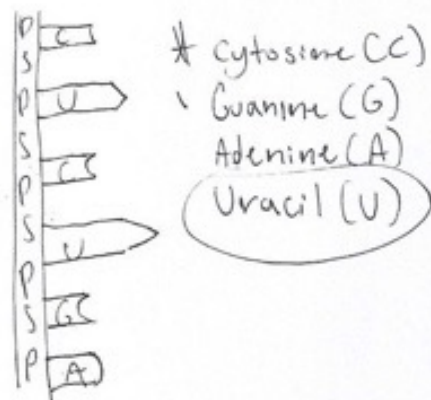 P
S C
P U
S
P C
S
P U
S G
P A
* Cytosine (C)
Guanine (G)
Adenine (A)
Uracil (U)